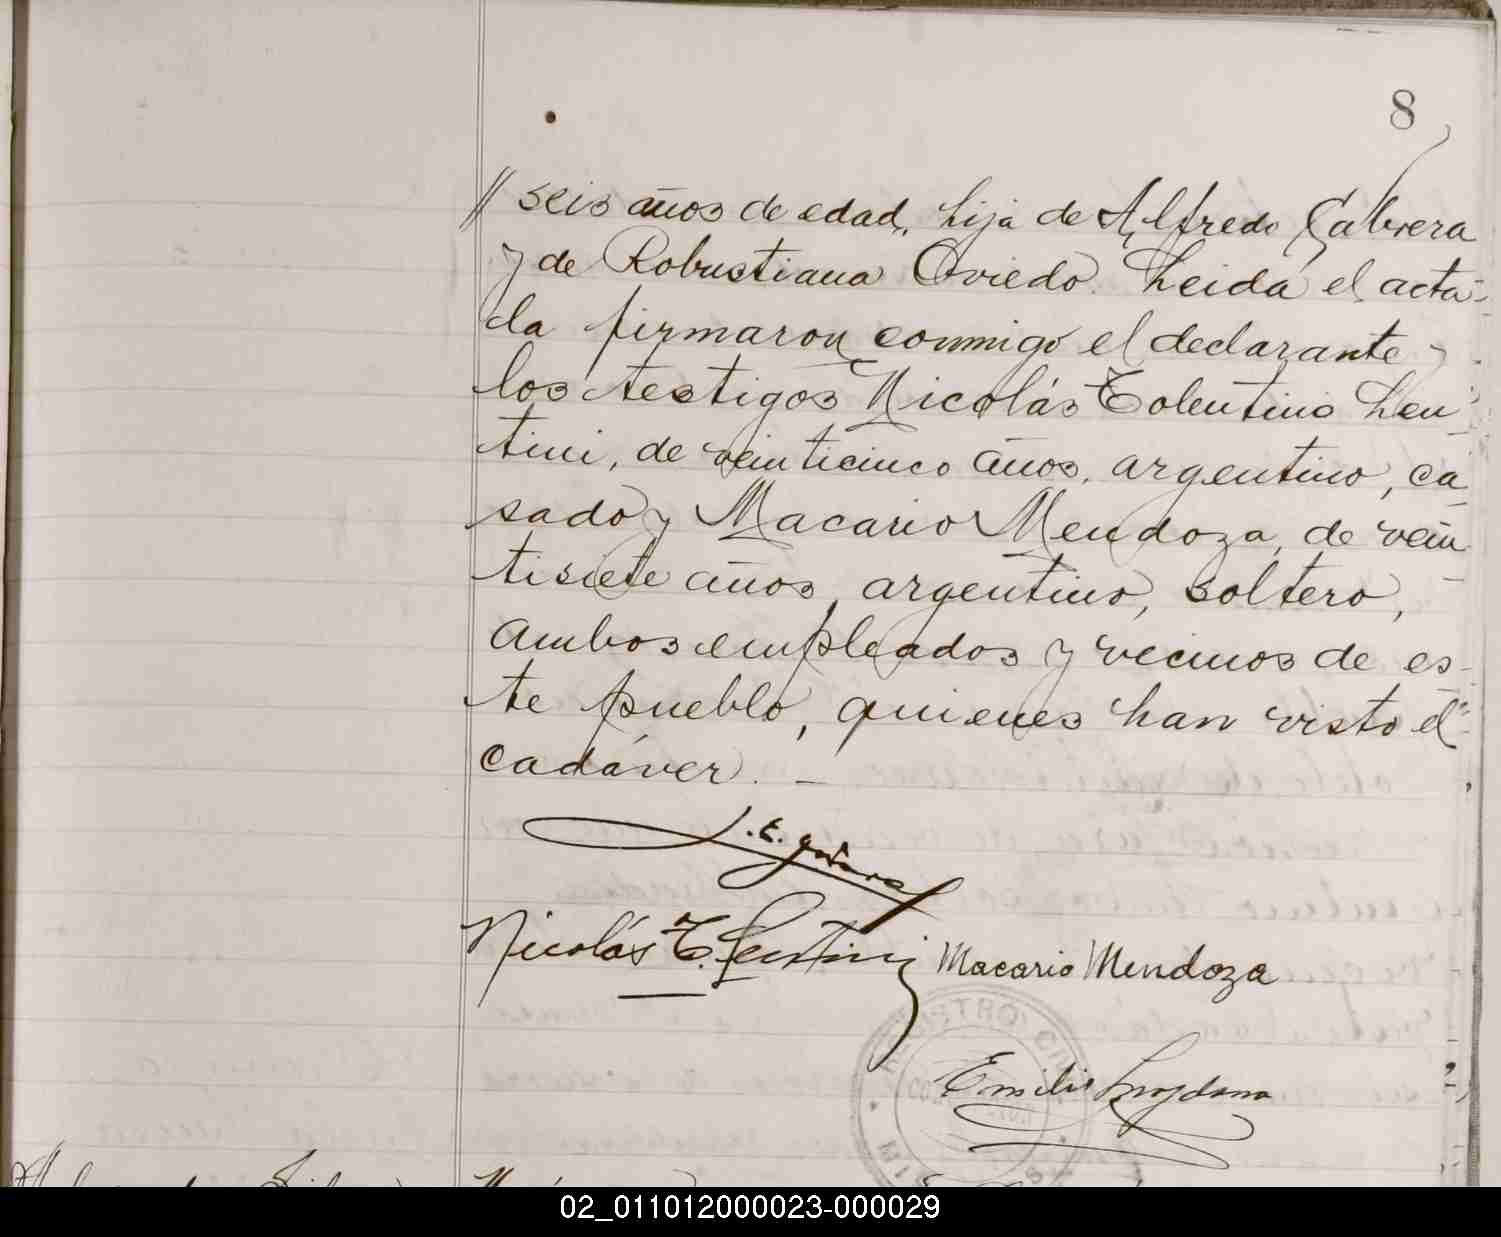 8
// seis años de edad, hija de Alfredo Cabrera
y de Robustiana Oviedo. Leida el acta
la firmaron conmigo el declarante y
los testigos Nicolás Tolentino Len
tini, de veinticinco años, argentino, ca
sado y Macario Mendoza, de vein
tisiete años, argentino, soltero,
ambos empleados y vecinos de es-
te pueblo, quienes han visto el
cadáver. —
J. E.
Nicolás T. Lentini Macario Mendoza
REGISTRO CIVIL
Emilio
02_011012000023-000029